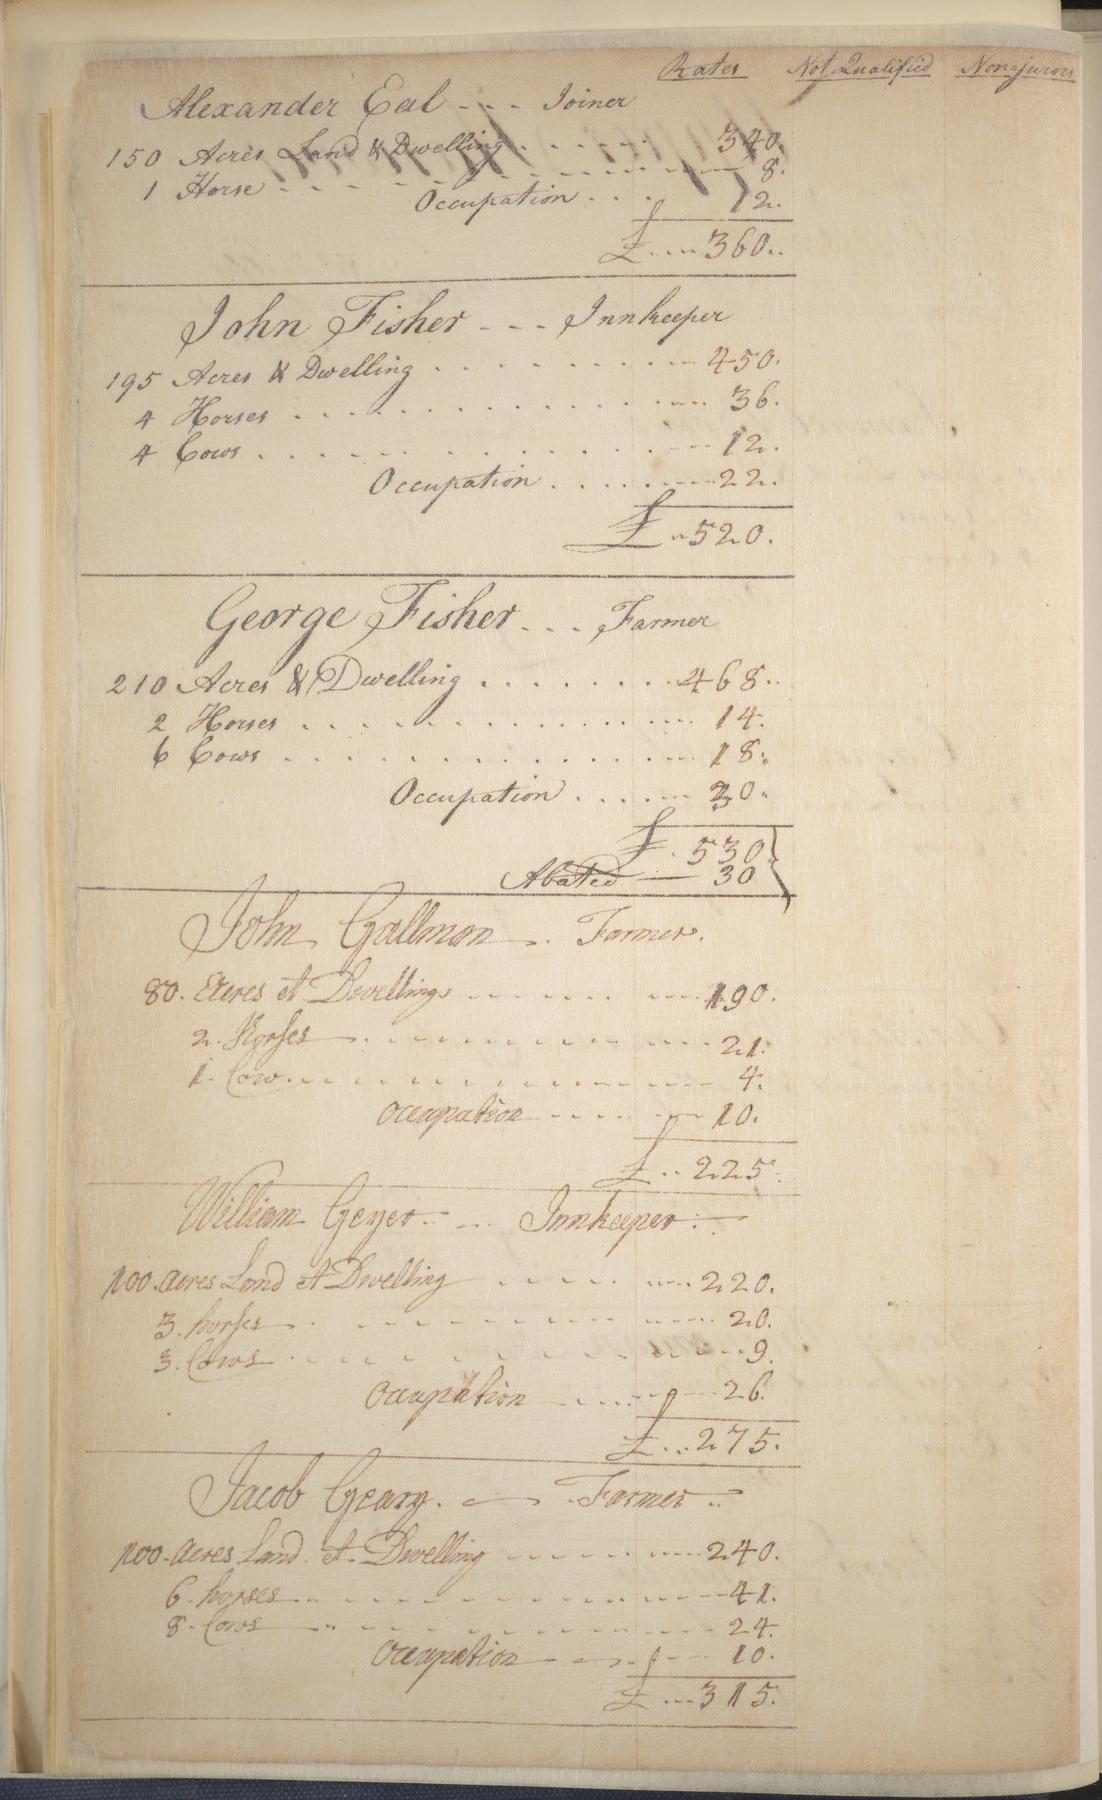 Rates Not Qualified Non-jurors
Alexander Eal - - - Joiner
150 Acres Land & Dwelling . . . . . 340.
1 Horse - - - - - - - 8.
Occupation . . . 12.
£ ... 360..
John Fisher - - - Innkeeper
195 Acres & Dwelling . . . . . . . 450.
4 Horses . . . . . . . . . . . 36.
4 Cows . . . . . . . . . . . 12.
Occupation . . . . . 22.
£ .. 520.
George Fisher - - - Farmer
210 Acres & Dwelling . . . . . . . 468..
2 Horses . . . . . . . . . . . 14.
6 Cows . . . . . . . . . . . 18.
Occupation . . . . . 30.
£ . 530
Abated — 30
John Gallman . Farmer.
80. Acres et Dwellings - - - - - 190.
2. Horses . - - - - - - - 21.
1. Cow. - - - - - - - - 4.
Occupation - - - - - 10.
£ .. 225.
William Geyer - - - Innkeeper.
100. acres Land et Dwelling - - - - - 220.
3. horses . - - - - - - - 20.
3. Cows . - - - - - - - 9.
Occupation - - - - - 26.
£ ... 275.
Jacob Geary. — Farmer ..
100. acres Land et Dwelling - - - - - 240.
6. horses - - - - - - - - 41.
8. Cows - - - - - - - - 24.
Occupation - - - - - 10.
£ ... 315.